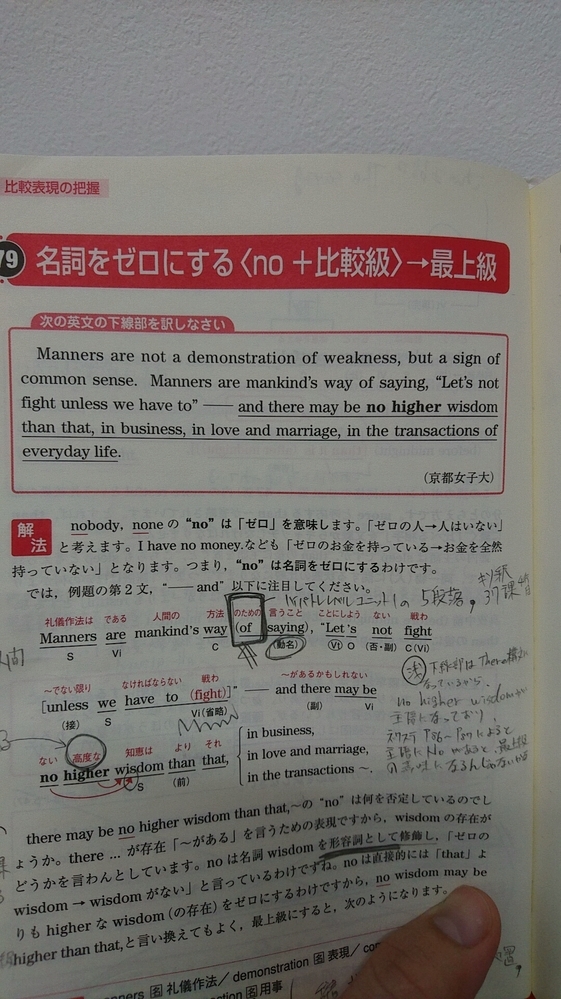 比較表現の把握
79 名詞をゼロにする〈no +比較級〉→最上級
次の英文の下線部を訳しなさい
Manners are not a demonstration of weakness, but a sign of
common sense. Manners are mankind's way of saying, “Let's not
fight unless we have to” ── and there may be no higher wisdom
than that, in business, in love and marriage, in the transactions of
everyday life.
(京都女子大)
解法
nobody, none の “no” は「ゼロ」を意味します。「ゼロの人→人はいない」
と考えます。I have no money.なども「ゼロのお金を持っている→お金を全然
持っていない」となります。つまり, “no” は名詞をゼロにするわけです。
では, 例題の第2文, “── and” 以下に注目してください。
の5段落。
礼儀作法は である 人間の 方法 のための 言うこと ことにしよう ない 戦わ
Manners are mankind's way (of saying), “Let's not fight
S Vi C (動名) Vt O (否・副) C(Vi)
〜でない限り なければならない 戦わ 〜があるかもしれない
[unless we have to (fight)]” ── and there may be
(接) S Vi(省略) (副) Vi
下線部は
no higher wisdomが
主語になっており,
ない 高度な 知恵は より それ
no higher wisdom than that,
S (前)
in business,
in love and marriage,
in the transactions 〜.
there may be no higher wisdom than that,〜の “no” は何を否定しているのでし
ょうか。there … が存在「〜がある」を言うための表現ですから, wisdom の存在が
どうかを言わんとしています。no は名詞 wisdom を形容詞として修飾し,「ゼロの
wisdom → wisdom がない」と言っているわけですね。no は直接的には「that」よ
りも higher な wisdom (の存在) をゼロにするわけですから, no wisdom may be
higher than that,と言い換えてもよく, 最上級にすると, 次のようになります。
manners 图 礼儀作法/ demonstration 图 表現/
图 用事